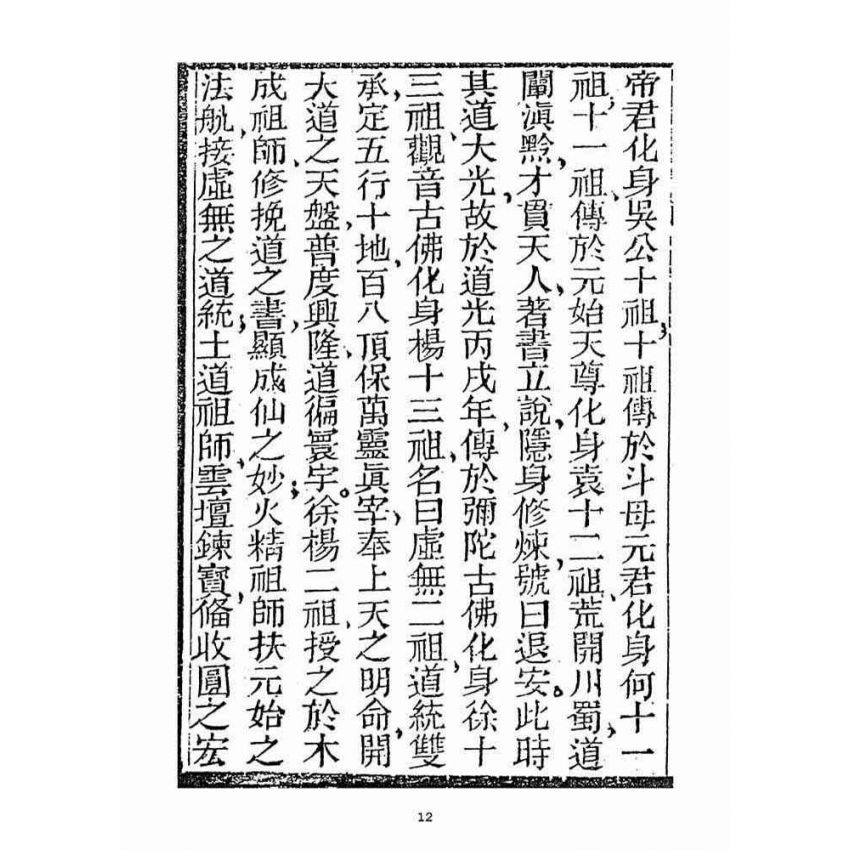 帝君化身吳公十祖十祖傳於斗母元君化身何十一
祖十一祖傳於元始天尊化身袁十二祖荒開川蜀道
闡滇黔才貫天人著書立說隱身修煉號曰退安此時
其道大光故於道光丙戌年傳於彌陀古佛化身徐十
三祖觀音古佛化身楊十三祖名曰虛無二祖道統雙
承定五行十地百八頂保萬靈眞宰奉上天之明命開
大道之天盤普度興隆道徧寰宇徐楊二祖授之於木
成祖師修挽道之書顯成仙之妙火精祖師扶元始之
法航接虛無之道統土道祖師雲壇鍊寶俻收圓之宏
12